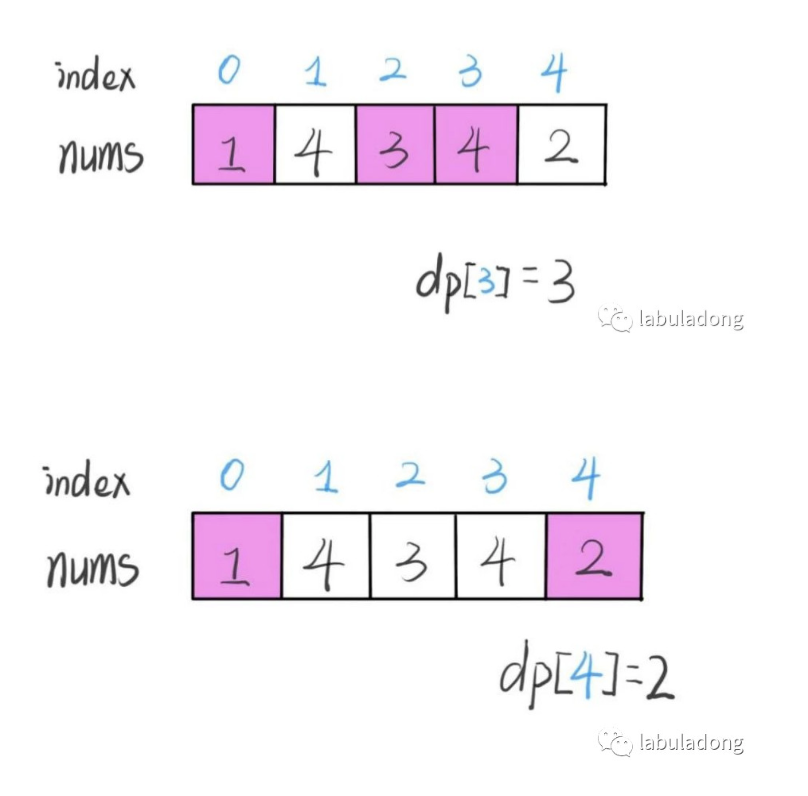 index 0 1 2 3 4
nums 1 4 3 4 2
dp[3]=3
labuladong
index 0 1 2 3 4
nums 1 4 3 4 2
dp[4]=2
labuladong